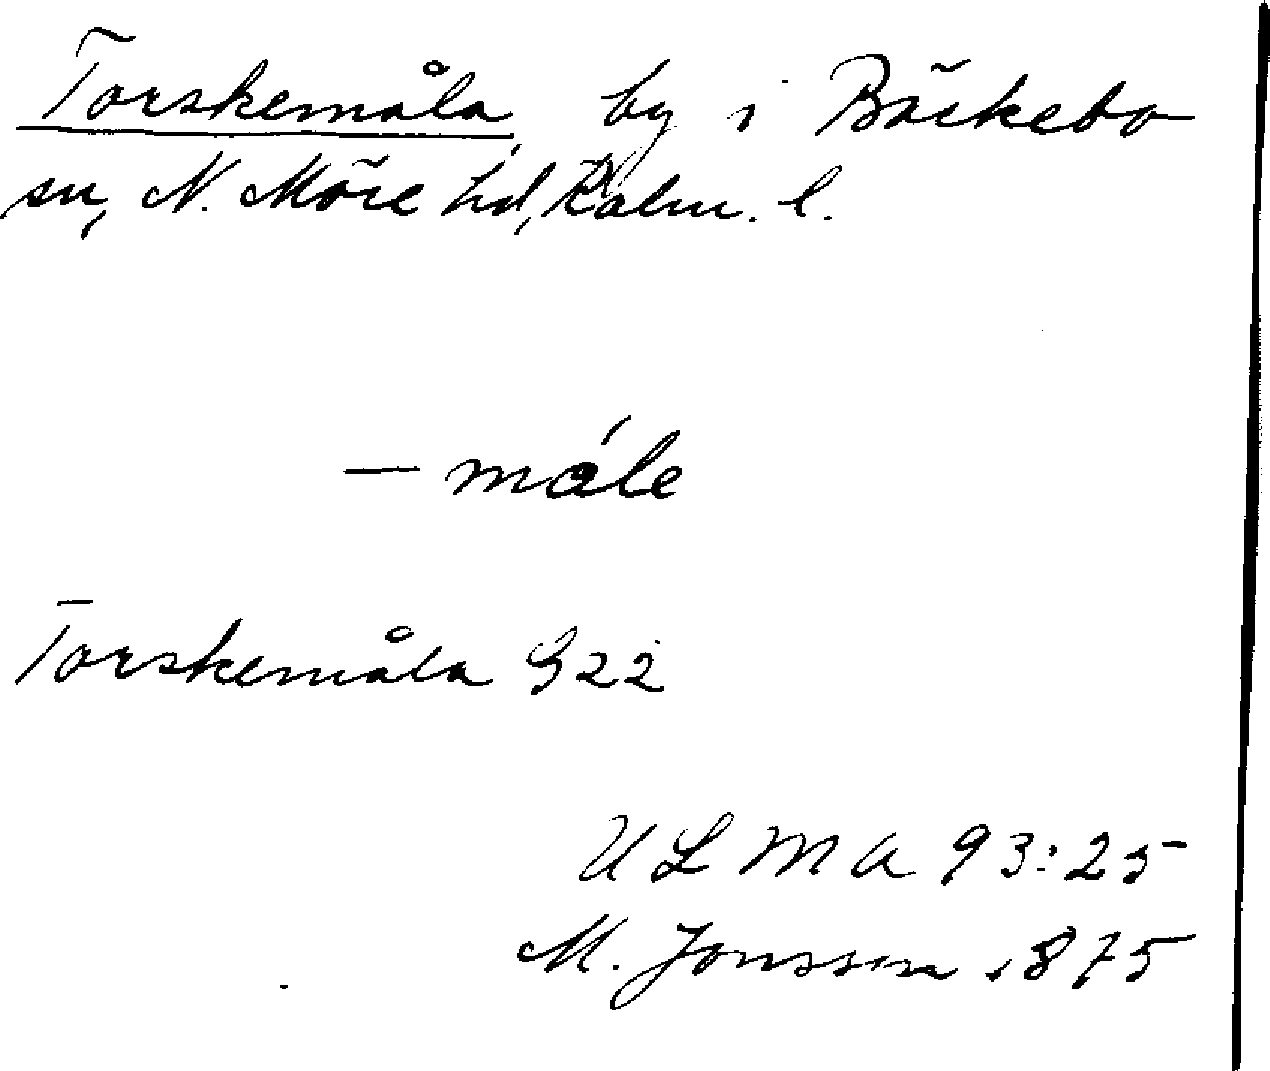 Torskemåla, by i Bäckebo
sn, N. Möre hd, Kalm. l.
— måle
Torskemåla G22
ULMA 93:25
M. Jonsson 1875